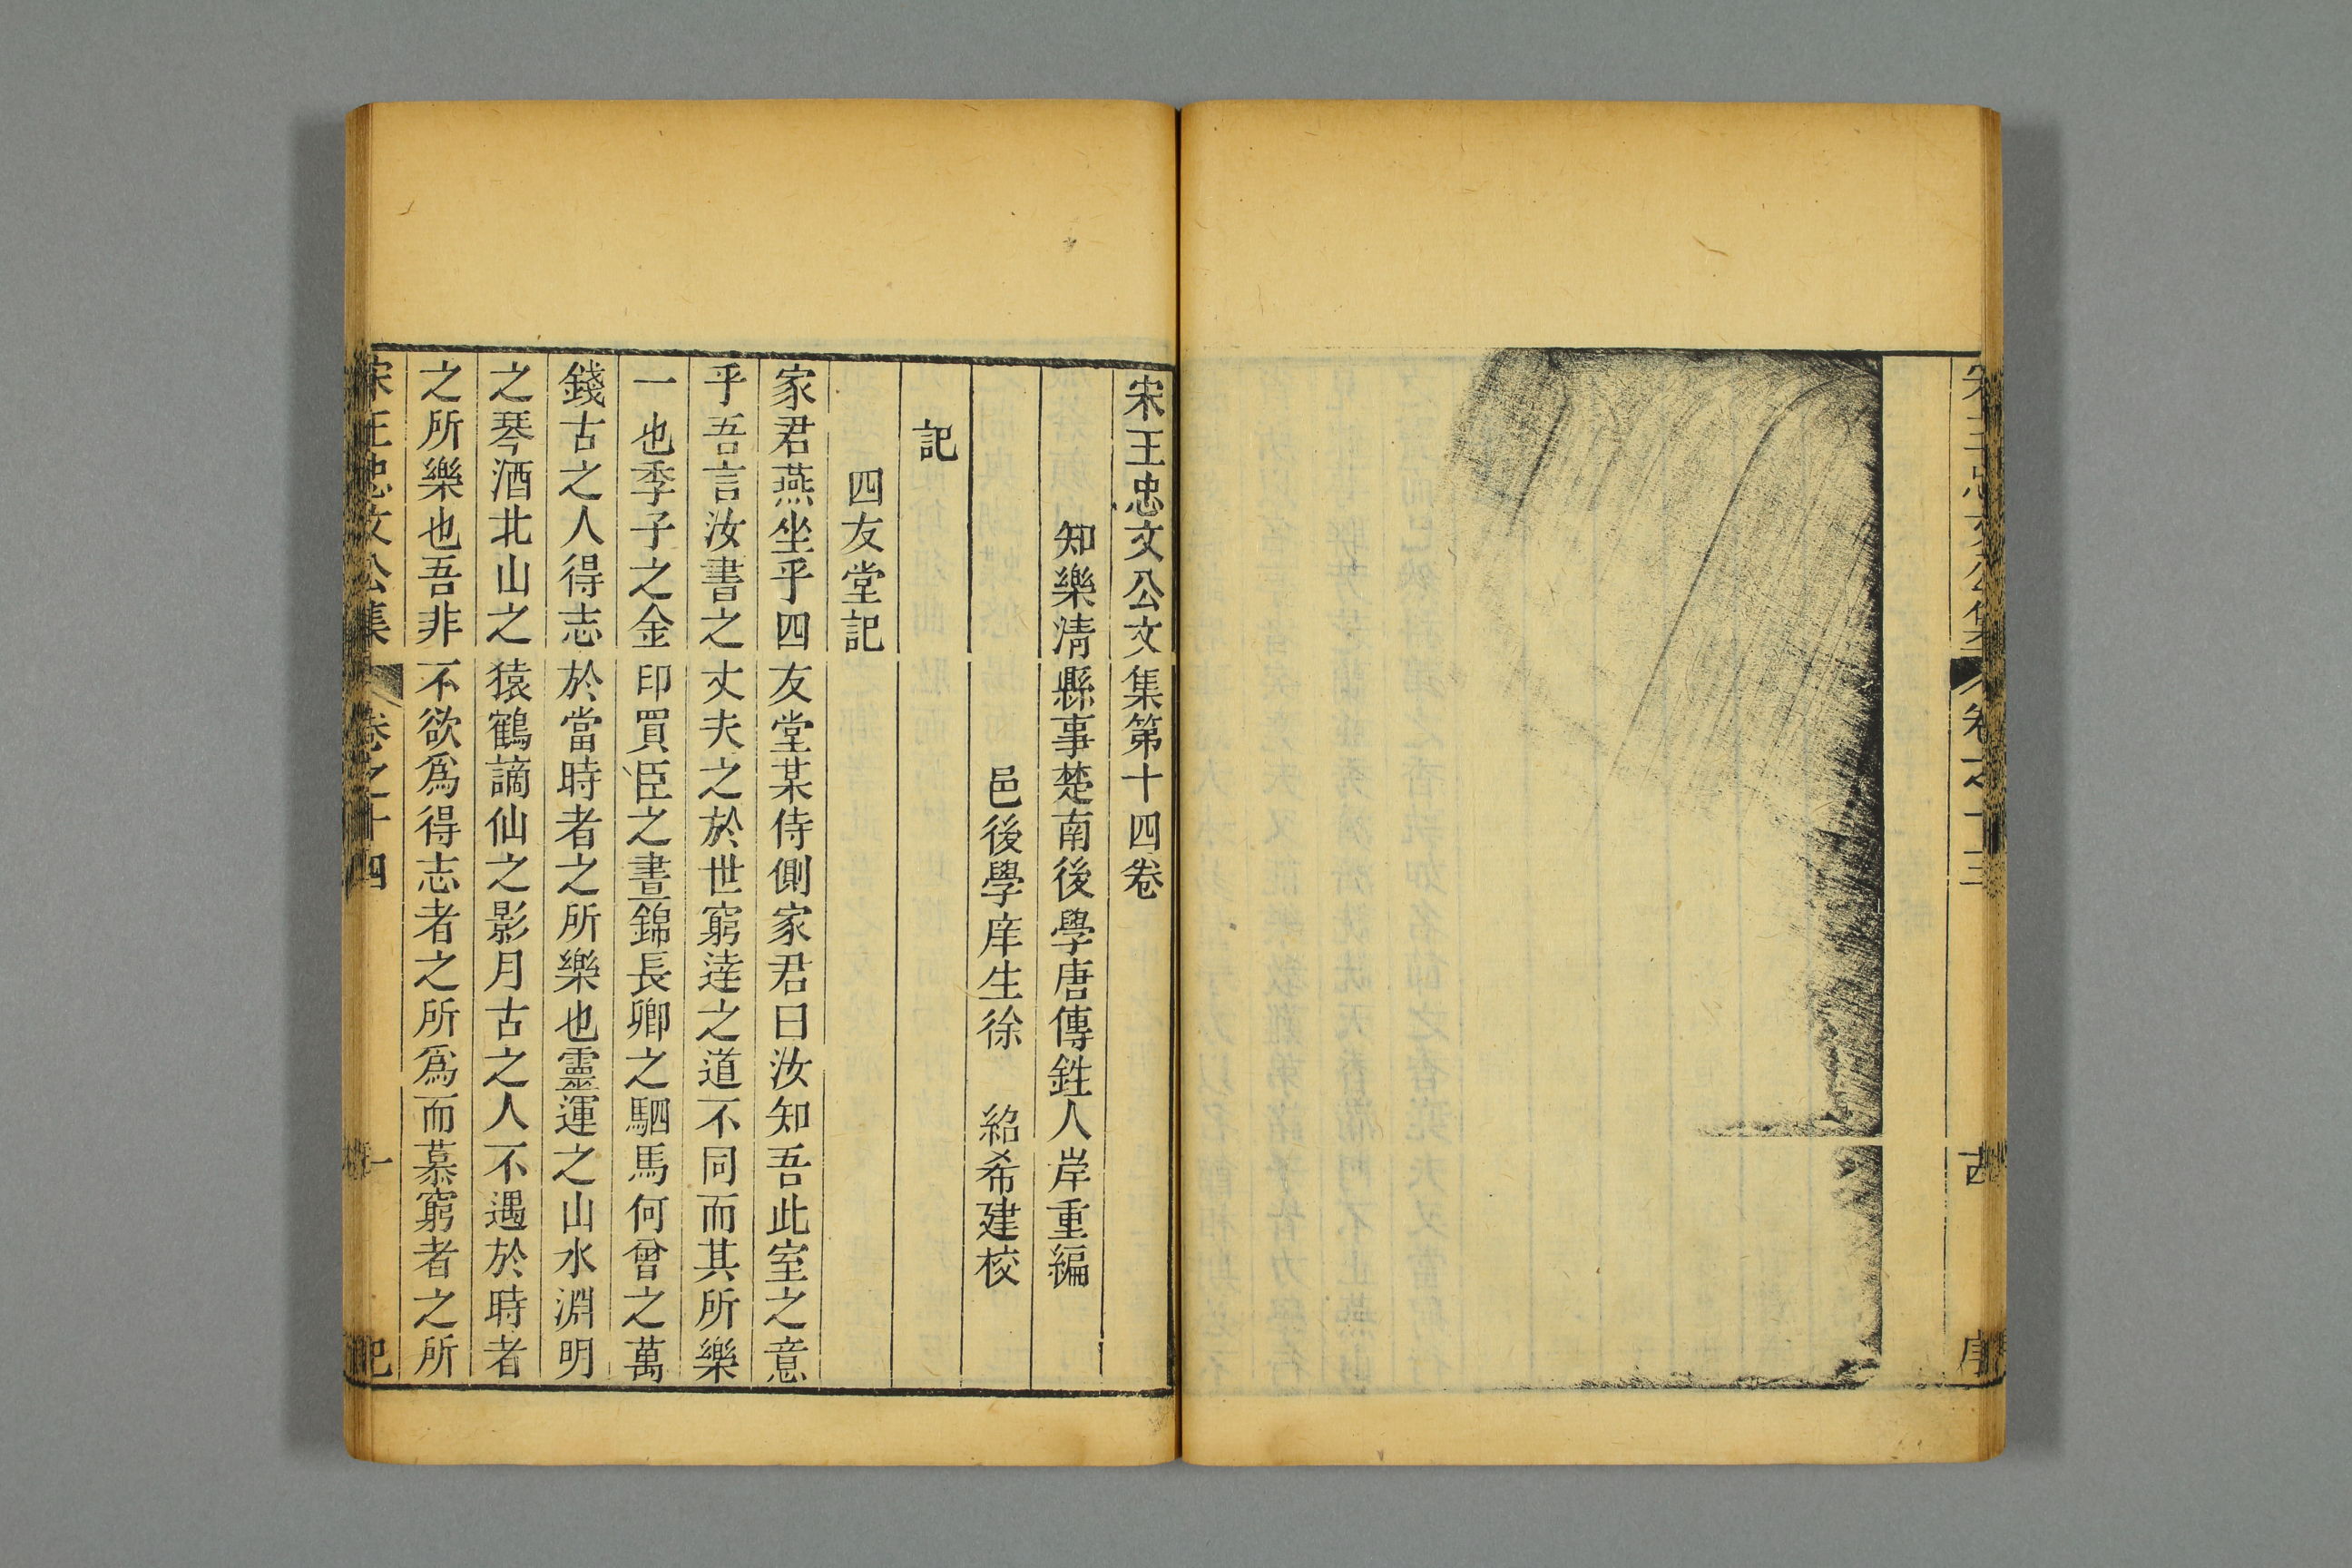 宋王忠文公集
卷之十三
序
宋王忠文公文集第十四卷
知樂清縣事楚南後學唐傳鉎人岸重編
邑後學庠生徐 紹希建校
記
四友堂記
家君燕坐乎四友堂某侍側家君曰汝知吾此室之意
乎吾言汝書之丈夫之於世窮達之道不同而其所樂
一也季子之金印買臣之晝錦長卿之駟馬何曾之萬
錢古之人得志於當時者之所樂也靈運之山水淵明
之琴酒北山之猿鶴謫仙之影月古之人不遇於時者
之所樂也吾非不欲爲得志者之所爲而慕窮者之所
宋王忠文公集
卷之十四
一
記